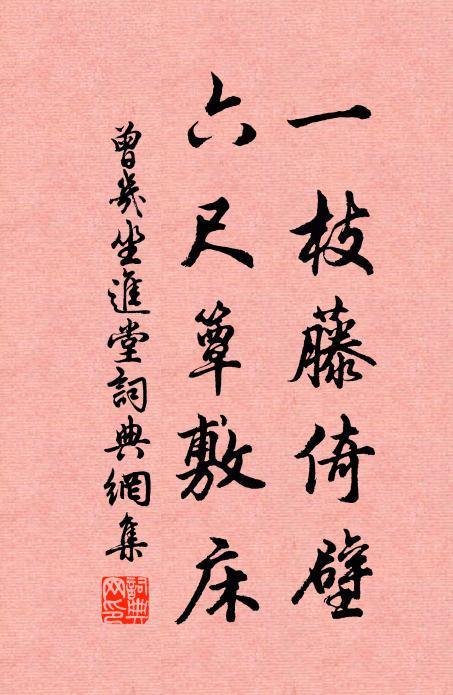 一枝藤倚壁
六尺簟敷床
曾几坐進堂詞典網集
詞典
网印